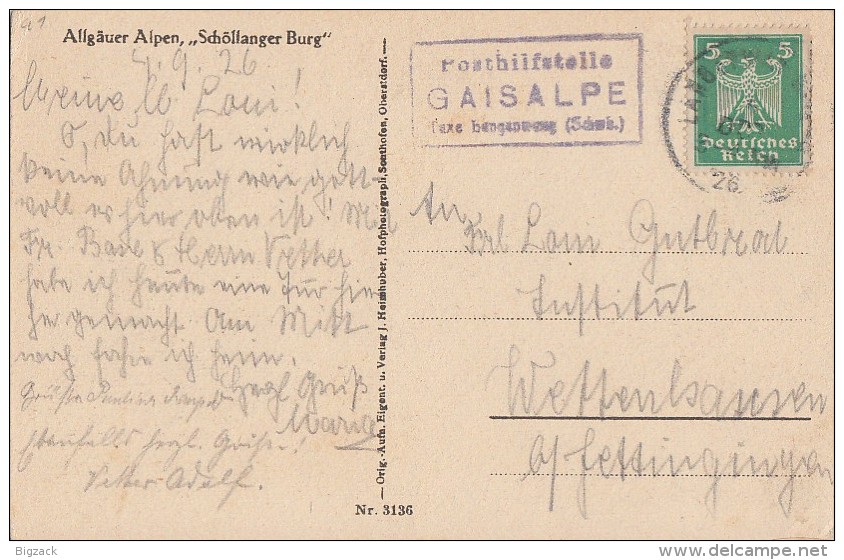 Allgäuer Alpen, „Schöllanger Burg“
4.9.26
Meine lb Loni!
O, du hast wirklich
keine Ahnung wie gott-
voll es hier oben ist! Mit
Fr. Base & Herrn Vetter
habe ich heute eine Tur hier
her gemacht. Am Mitt
woch fahre ich heim.
Herzl. Gruß
Maria
Ebenfalls herzl. Grüße!
Vetter Adolf.
Orig.-Aufn. Eigent. u. Verlag J. Heimhuber, Hofphotograph, Sonthofen, Oberstdorf.
Nr. 3136
Posthilfstelle
GAISALPE
Taxe Langenwang (Schwb.)
5 5
Deutsches
Reich
LAND
26
An
Frl Loni Gutbrod
Institut
Wettenhausen
b/ Jettingingen
Bigzack
www.delcampe.net